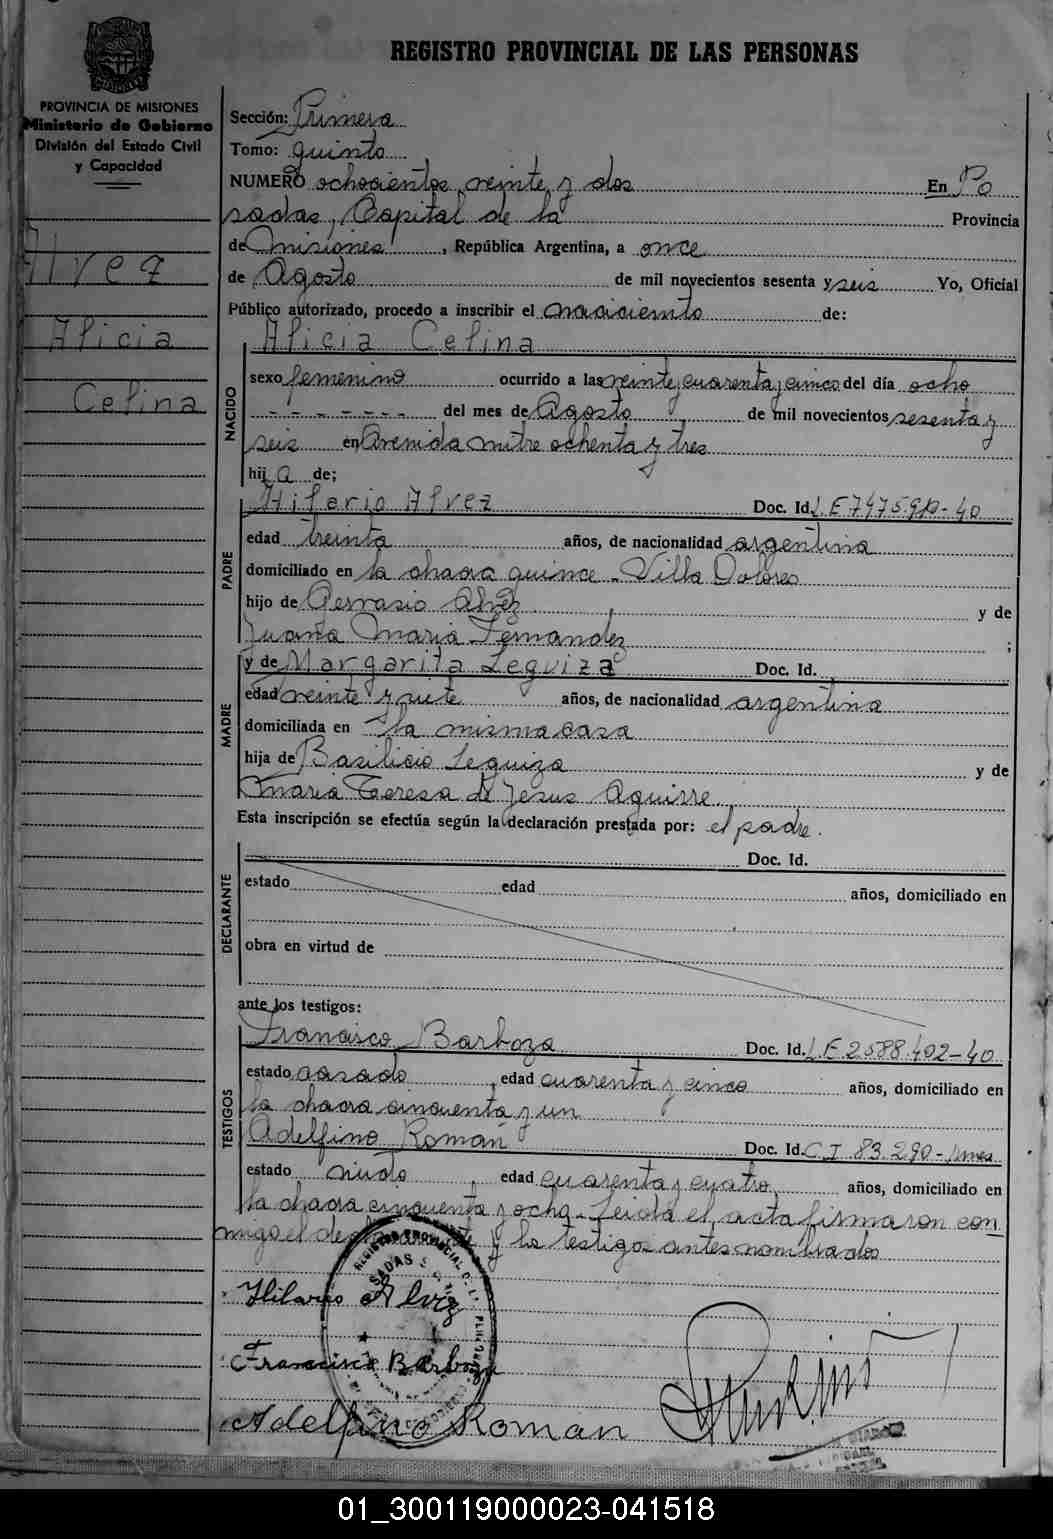 REGISTRO PROVINCIAL DE LAS PERSONAS
PROVINCIA DE MISIONES
Ministerio de Gobierno
División del Estado Civil
y Capacidad
Alvez
Alicia
Celina
Sección: Primera
Tomo: quinto
NUMERO ochocientos veinte y dos En Po
sadas, Capital de la Provincia
de Misiones, República Argentina, a once
de Agosto de mil novecientos sesenta y seis Yo, Oficial
Público autorizado, procedo a inscribir el nacimiento de:
NACIDO
Alicia Celina
sexo femenino ocurrido a las veinte, cuarenta y cinco del día ocho
- - - - - - - - del mes de Agosto de mil novecientos sesenta y
seis en Avenida Mitre ochenta y tres
hija de;
PADRE
Hilario Alvez Doc. Id. L.E 7475.910-40
edad treinta años, de nacionalidad argentina
domiciliado en la chacra quince - Villa Dolores
hijo de Gervasio Alvez y de
Juana Maria Fernandez ;
MADRE
y de Margarita Leguiza Doc. Id.
edad veinte y siete años, de nacionalidad argentina
domiciliada en la misma casa
hija de Basilicio Leguiza y de
Maria Teresa de Jesus Aguirre.
Esta inscripción se efectúa según la declaración prestada por: el padre.
DECLARANTE
Doc. Id.
estado edad años, domiciliado en
obra en virtud de
ante los testigos:
TESTIGOS
Francisco Barboza Doc. Id. L.E 2588.402-40
estado casado, edad cuarenta y cinco años, domiciliado en
la chacra cincuenta y un
Adelfino Román Doc. Id. C.I 83.290-Mnes
estado viudo, edad cuarenta y cuatro, años, domiciliado en
la chacra cincuenta y ocho. Leida el acta firmaron con
migo el y los testigos antes nombrados
Hilario Alvez
Francisco Barboza
Adelfino Roman
REGISTRO PROVINCIAL
SADAS
01_300119000023-041518